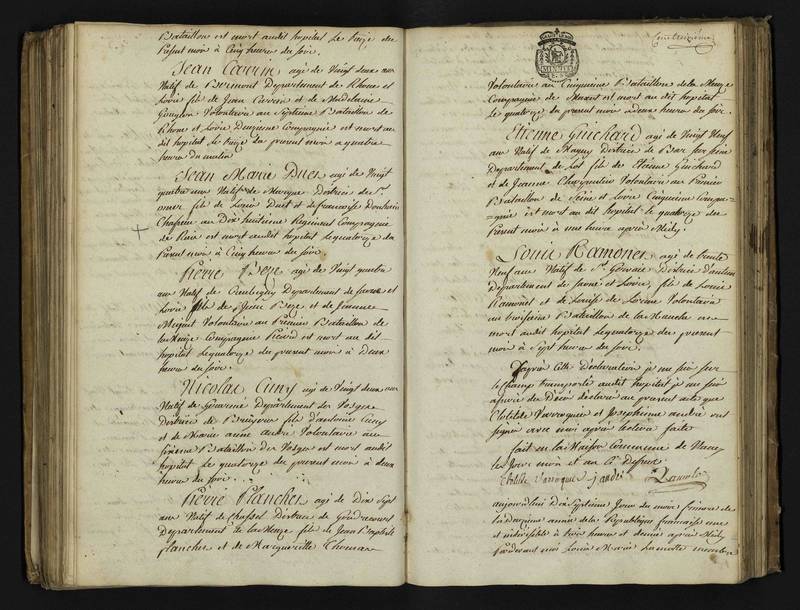 Bataillon est mort audit hopital Le treize du
present mois à Cinq heures du soir.
Jean Carrin agé de Vingt deux ans
Natif de Departement de Rhone et
Loire fils de Jean Carrin et de Madelaine
Volontaire au Septieme Bataillon de
Rhone et Loire Compagnie est mort au
dit hopital Le treize du present mois a quatre
heures du matin
Jean Marie Duet agé de Vingt
quatre ans Natif de District de St
omer fils de Louis Duet et de françoise
Chasseur au Dix huitieme Regiment Compagnie
de est mort audit hopital Le quatorze du
Present mois à Cinq heures du soir
Pierre Beze agé de Vingt quatre
ans Natif de Departement de Saone et
Loire fils de Beze et de Jeanne
Volontaire au Premier Bataillon de
Compagnie Picard est mort au dit
hopital Le quatorze du present mois à Deux
heures du soir.
Nicolas Cuny agé de Vingt deux ans
Natif de Departement des Vosges
District de Bruyeres fils d'antoine Cuny
et de Marie anne andré Volontaire au
Bataillon des Vosges est mort audit
hopital Le quatorze du present mois à deux
heures du soir.
Pierre Planches agé de Dix Sept
ans Natif de District de Gondrecourt
Departement de la Meuze fils de Jean Baptiste
planches et de Margueritte Thomas
Volontaire au Cinquieme Bataillon de la Meuze
Compagnie de est mort au dit hopital
Le quatorze du present mois à deux heures du soir.
Etienne Guichard agé de Vingt Neuf
ans Natif de Magny District de Bar sur seine
Departement de fils de Etienne Guichard
et de Jeanne Charpentier Volontaire au Premier
Bataillon de Seine et Loire Cinquieme Compa=
=gnie est mort au dit hopital le quatorze du
Present mois à une heure après Midy.
Louis Ramonet agé de trente
Neuf ans Natif de St Gervais District d'autun
Departement de Saone et Loire, fils de Louis
Ramonet et de Louise de Lorme Volontaire
au troisieme Bataillon de la Manche est
mort audit hopital Le quatorze du present
mois à Sept heures du soir.
D'après cette Declaration je me suis sur
le champ transporté audit hopital je me suis
assuré du Décès declaré au present acte que
Clotilde Varroquier et Josephine andré ont
signé avec moi après lecture faite
fait en la Maison Commune de Nancy
les Jour mois et an Ci Dessus
Clotilde Varroquier j andré Lamotte
aujourd'hui Dix Septieme Jour du mois frimaire de
la Deuzieme année de la Republique francaise une
et indivisible à trois heures et demie après Midy
par devant moi Louis Marie Lamotte membre